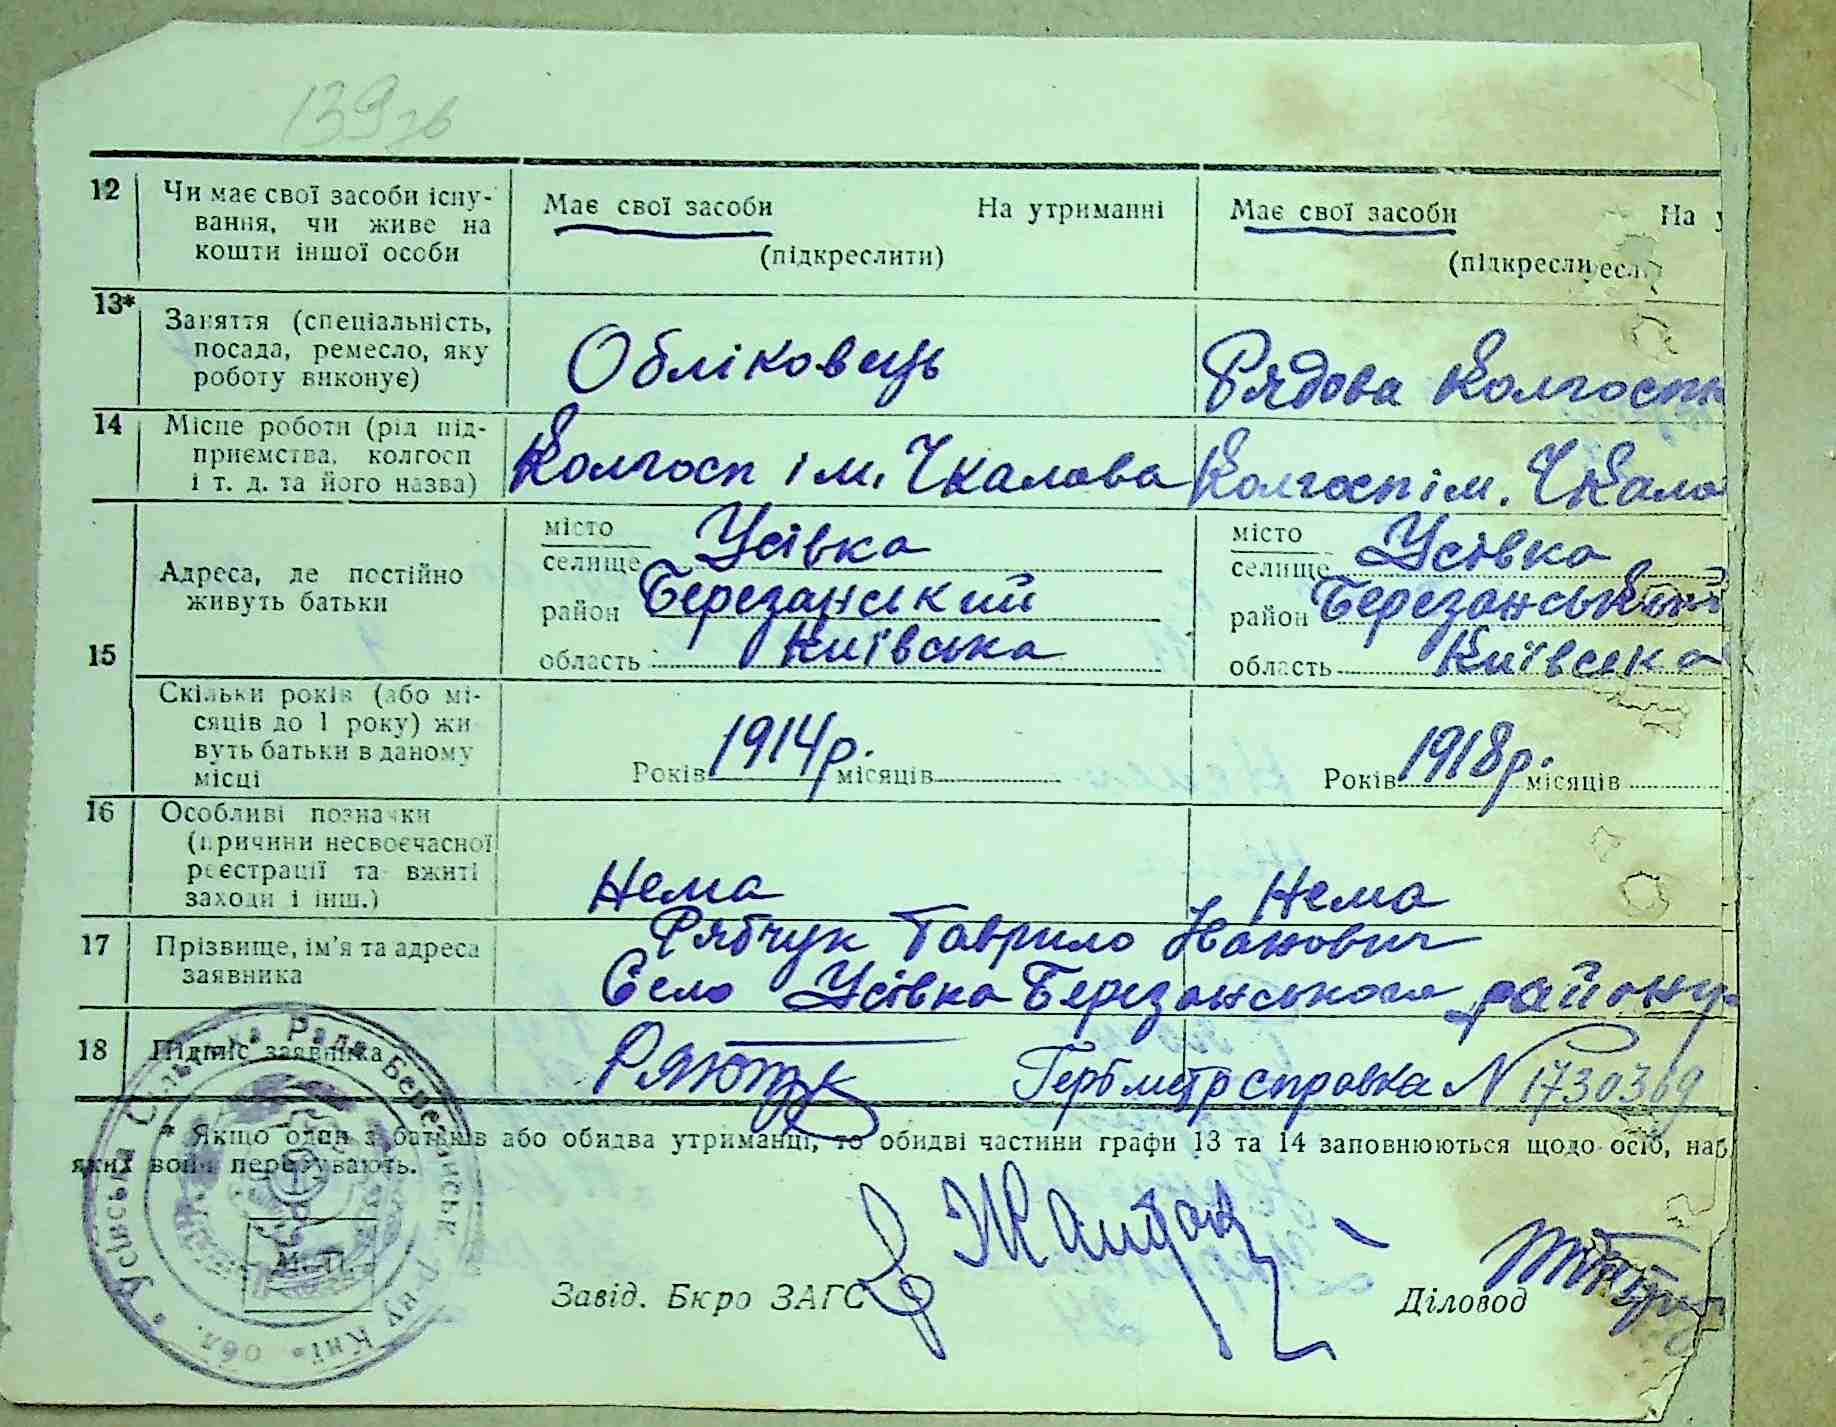 139 зв
12 Чи має свої засоби існу- Має свої засоби На утриманні Має свої засоби На у
вання, чи живе на
кошти іншої особи (підкреслити) (підкресли
13* Заняття (спеціальність,
посада, ремесло, яку Обліковець Рядова колгоспн
роботу виконує)
14 Місце роботи (рід під-
приємства, колгосп Колгосп ім. Чкалова Колгосп ім. Чкало
і т. д. та його назва)
15 Адреса, де постійно місто Усівка місто Усівка
живуть батьки селище селище
район Березанський район Березанський
область Київська область Київська
Скільки років (або мі-
сяців до 1 року) жи
вуть батьки в даному
місці Років 1914 р. місяців Років 1918 р. місяців
16 Особливі позначки
(причини несвоєчасної
реєстрації та вжиті
заходи і інш.) Нема Нема
17 Прізвище, ім'я та адреса Рябчук Гаврило Иванович
заявника Село Усівка Березанського району
18 Підпис заявника справка N 1730369
* Якщо один з батьків або обидва утриманці, то обидві частини графи 13 та 14 заповнюються щодо осіб, на
яких вони перебувають.
М. П.
Завід. Бюро ЗАГС Діловод
Усівська Сільська Рада Березанськ р-ну Київ обл.